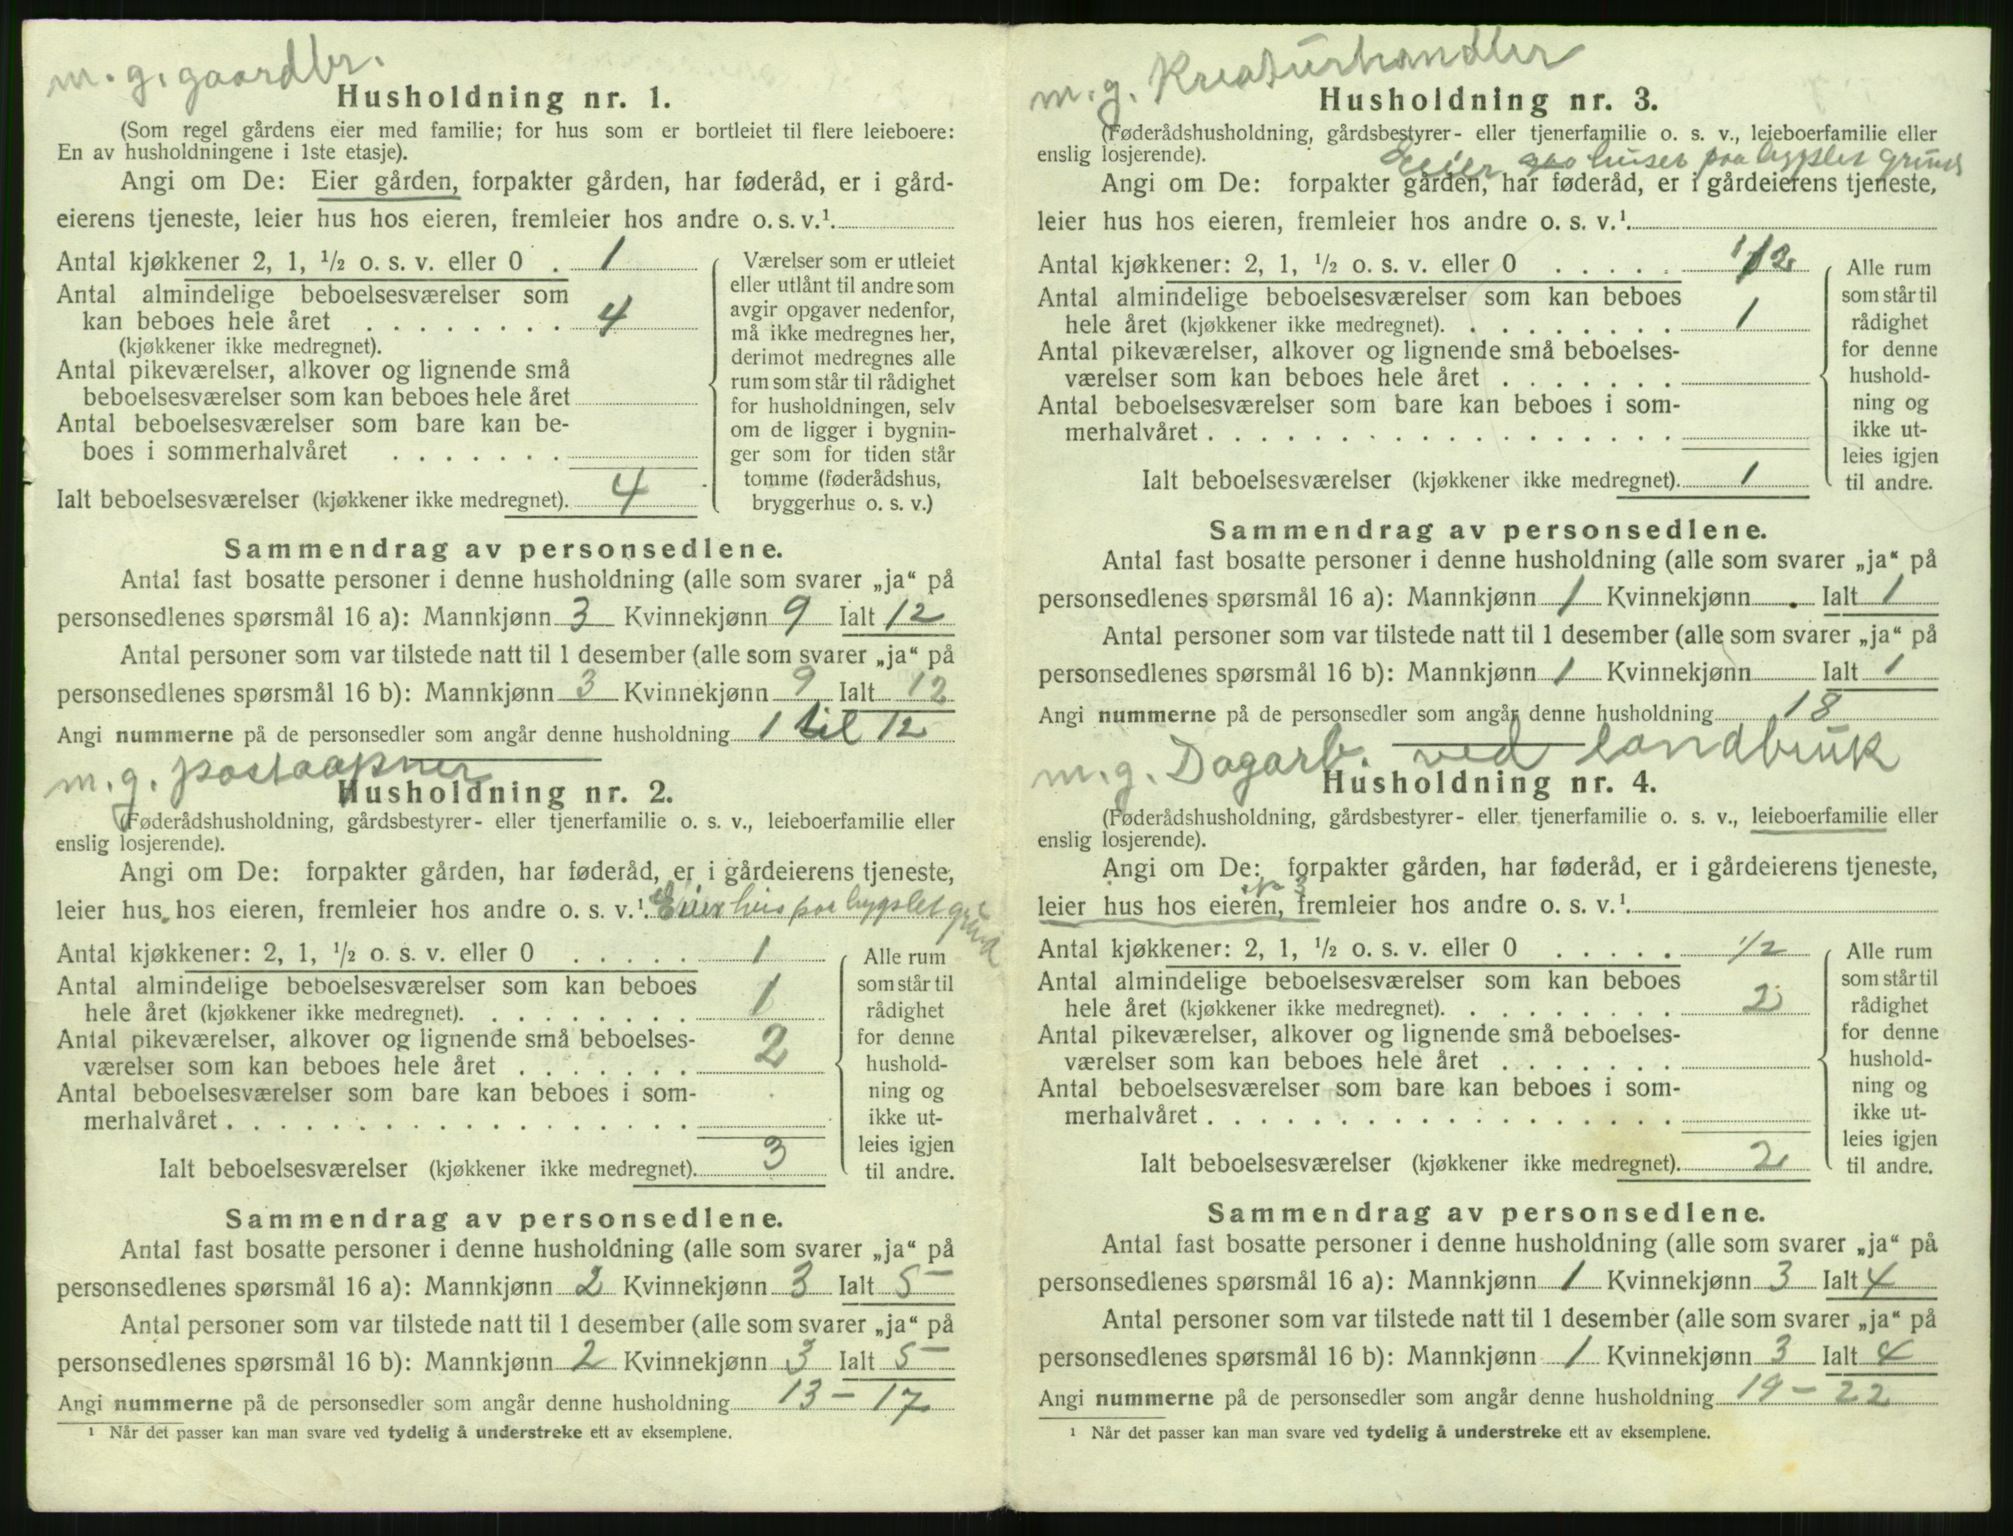 m. g. gaardbr.
Husholdning nr. 1.
(Som regel gårdens eier med familie; for hus som er bortleiet til flere leieboere:
En av husholdningene i 1ste etasje).
Angi om De: Eier gården, forpakter gården, har føderåd, er i gård-
eierens tjeneste, leier hus hos eieren, fremleier hos andre o. s. v.¹.
Antal kjøkkener 2, 1, ½ o. s. v. eller 0 . 1
Antal almindelige beboelsesværelser som
kan beboes hele året . . . . . . . . 4
(kjøkkener ikke medregnet).
Antal pikeværelser, alkover og lignende små
beboelsesværelser som kan beboes hele året
Antal beboelsesværelser som bare kan be-
boes i sommerhalvåret . . . . . . .
Ialt beboelsesværelser (kjøkkener ikke medregnet). 4
Værelser som er utleiet
eller utlånt til andre som
avgir opgaver nedenfor,
må ikke medregnes her,
derimot medregnes alle
rum som står til rådighet
for husholdningen, selv
om de ligger i bygnin-
ger som for tiden står
tomme (føderådshus,
bryggerhus o. s. v.)
Sammendrag av personsedlene.
Antal fast bosatte personer i denne husholdning (alle som svarer „ja“ på
personsedlenes spørsmål 16 a): Mannkjønn 3 Kvinnekjønn 9 Ialt 12
Antal personer som var tilstede natt til 1 desember (alle som svarer „ja“ på
personsedlenes spørsmål 16 b): Mannkjønn 3 Kvinnekjønn 9 Ialt 12
Angi nummerne på de personsedler som angår denne husholdning 1 til 12
m. g. postaapner
Husholdning nr. 2.
(Føderådshusholdning, gårdsbestyrer- eller tjenerfamilie o. s. v., leieboerfamilie eller
enslig losjerende).
Angi om De: forpakter gården, har føderåd, er i gårdeierens tjeneste,
leier hus hos eieren, fremleier hos andre o. s. v.¹. Eier hus paa bygslet grund
Antal kjøkkener: 2, 1, ½ o. s. v. eller 0 . . . . . 1
Antal almindelige beboelsesværelser som kan beboes
hele året (kjøkkener ikke medregnet). . . . . . . . . 1
Antal pikeværelser, alkover og lignende små beboelses-
værelser som kan beboes hele året . . . . . . . 2
Antal beboelsesværelser som bare kan beboes i som-
merhalvåret . . . . . . . . . . . . . . . . . .
Ialt beboelsesværelser (kjøkkener ikke medregnet). 3
Alle rum
som står til
rådighet
for denne
hushold-
ning og
ikke ut-
leies igjen
til andre.
Sammendrag av personsedlene.
Antal fast bosatte personer i denne husholdning (alle som svarer „ja“ på
personsedlenes spørsmål 16 a): Mannkjønn 2 Kvinnekjønn 3 Ialt 5
Antal personer som var tilstede natt til 1 desember (alle som svarer „ja“ på
personsedlenes spørsmål 16 b): Mannkjønn 2 Kvinnekjønn 3 Ialt 5
Angi nummerne på de personsedler som angår denne husholdning 13 - 17
¹ Når det passer kan man svare ved tydelig å understreke ett av eksemplene.
m. g. Kreaturhandler
Husholdning nr. 3.
(Føderådshusholdning, gårdsbestyrer- eller tjenerfamilie o. s. v., leieboerfamilie eller
enslig losjerende).
Eier huset paa bygslet grund
Angi om De: forpakter gården, har føderåd, er i gårdeierens tjeneste,
leier hus hos eieren, fremleier hos andre o. s. v.¹.
Antal kjøkkener: 2, 1, ½ o. s. v. eller 0 . . . . . 1/2
Antal almindelige beboelsesværelser som kan beboes
hele året (kjøkkener ikke medregnet). . . . . . . . . 1
Antal pikeværelser, alkover og lignende små beboelses-
værelser som kan beboes hele året . . . . . . .
Antal beboelsesværelser som bare kan beboes i som-
merhalvåret . . . . . . . . . . . . . . . . . .
Ialt beboelsesværelser (kjøkkener ikke medregnet). 1
Alle rum
som står til
rådighet
for denne
hushold-
ning og
ikke ut-
leies igjen
til andre.
Sammendrag av personsedlene.
Antal fast bosatte personer i denne husholdning (alle som svarer „ja“ på
personsedlenes spørsmål 16 a): Mannkjønn 1 Kvinnekjønn . Ialt 1
Antal personer som var tilstede natt til 1 desember (alle som svarer „ja“ på
personsedlenes spørsmål 16 b): Mannkjønn 1 Kvinnekjønn Ialt 1
Angi nummerne på de personsedler som angår denne husholdning 18
m. g. Dagarb. ved landbruk
Husholdning nr. 4.
(Føderådshusholdning, gårdsbestyrer- eller tjenerfamilie o. s. v., leieboerfamilie eller
enslig losjerende).
Angi om De: forpakter gården, har føderåd, er i gårdeierens tjeneste,
leier hus hos eieren, fremleier hos andre o. s. v.¹.
Antal kjøkkener: 2, 1, ½ o. s. v. eller 0 . . . . . 1/2
Antal almindelige beboelsesværelser som kan beboes
hele året (kjøkkener ikke medregnet). . . . . . . . . 2
Antal pikeværelser, alkover og lignende små beboelses-
værelser som kan beboes hele året . . . . . . .
Antal beboelsesværelser som bare kan beboes i som-
merhalvåret . . . . . . . . . . . . . . . . . .
Ialt beboelsesværelser (kjøkkener ikke medregnet). 2
Alle rum
som står til
rådighet
for denne
hushold-
ning og
ikke ut-
leies igjen
til andre.
Sammendrag av personsedlene.
Antal fast bosatte personer i denne husholdning (alle som svarer „ja“ på
personsedlenes spørsmål 16 a): Mannkjønn 1 Kvinnekjønn 3 Ialt 4
Antal personer som var tilstede natt til 1 desember (alle som svarer „ja“ på
personsedlenes spørsmål 16 b): Mannkjønn 1 Kvinnekjønn 3 Ialt 4
Angi nummerne på de personsedler som angår denne husholdning 19 - 22
¹ Når det passer kan man svare ved tydelig å understreke ett av eksemplene.